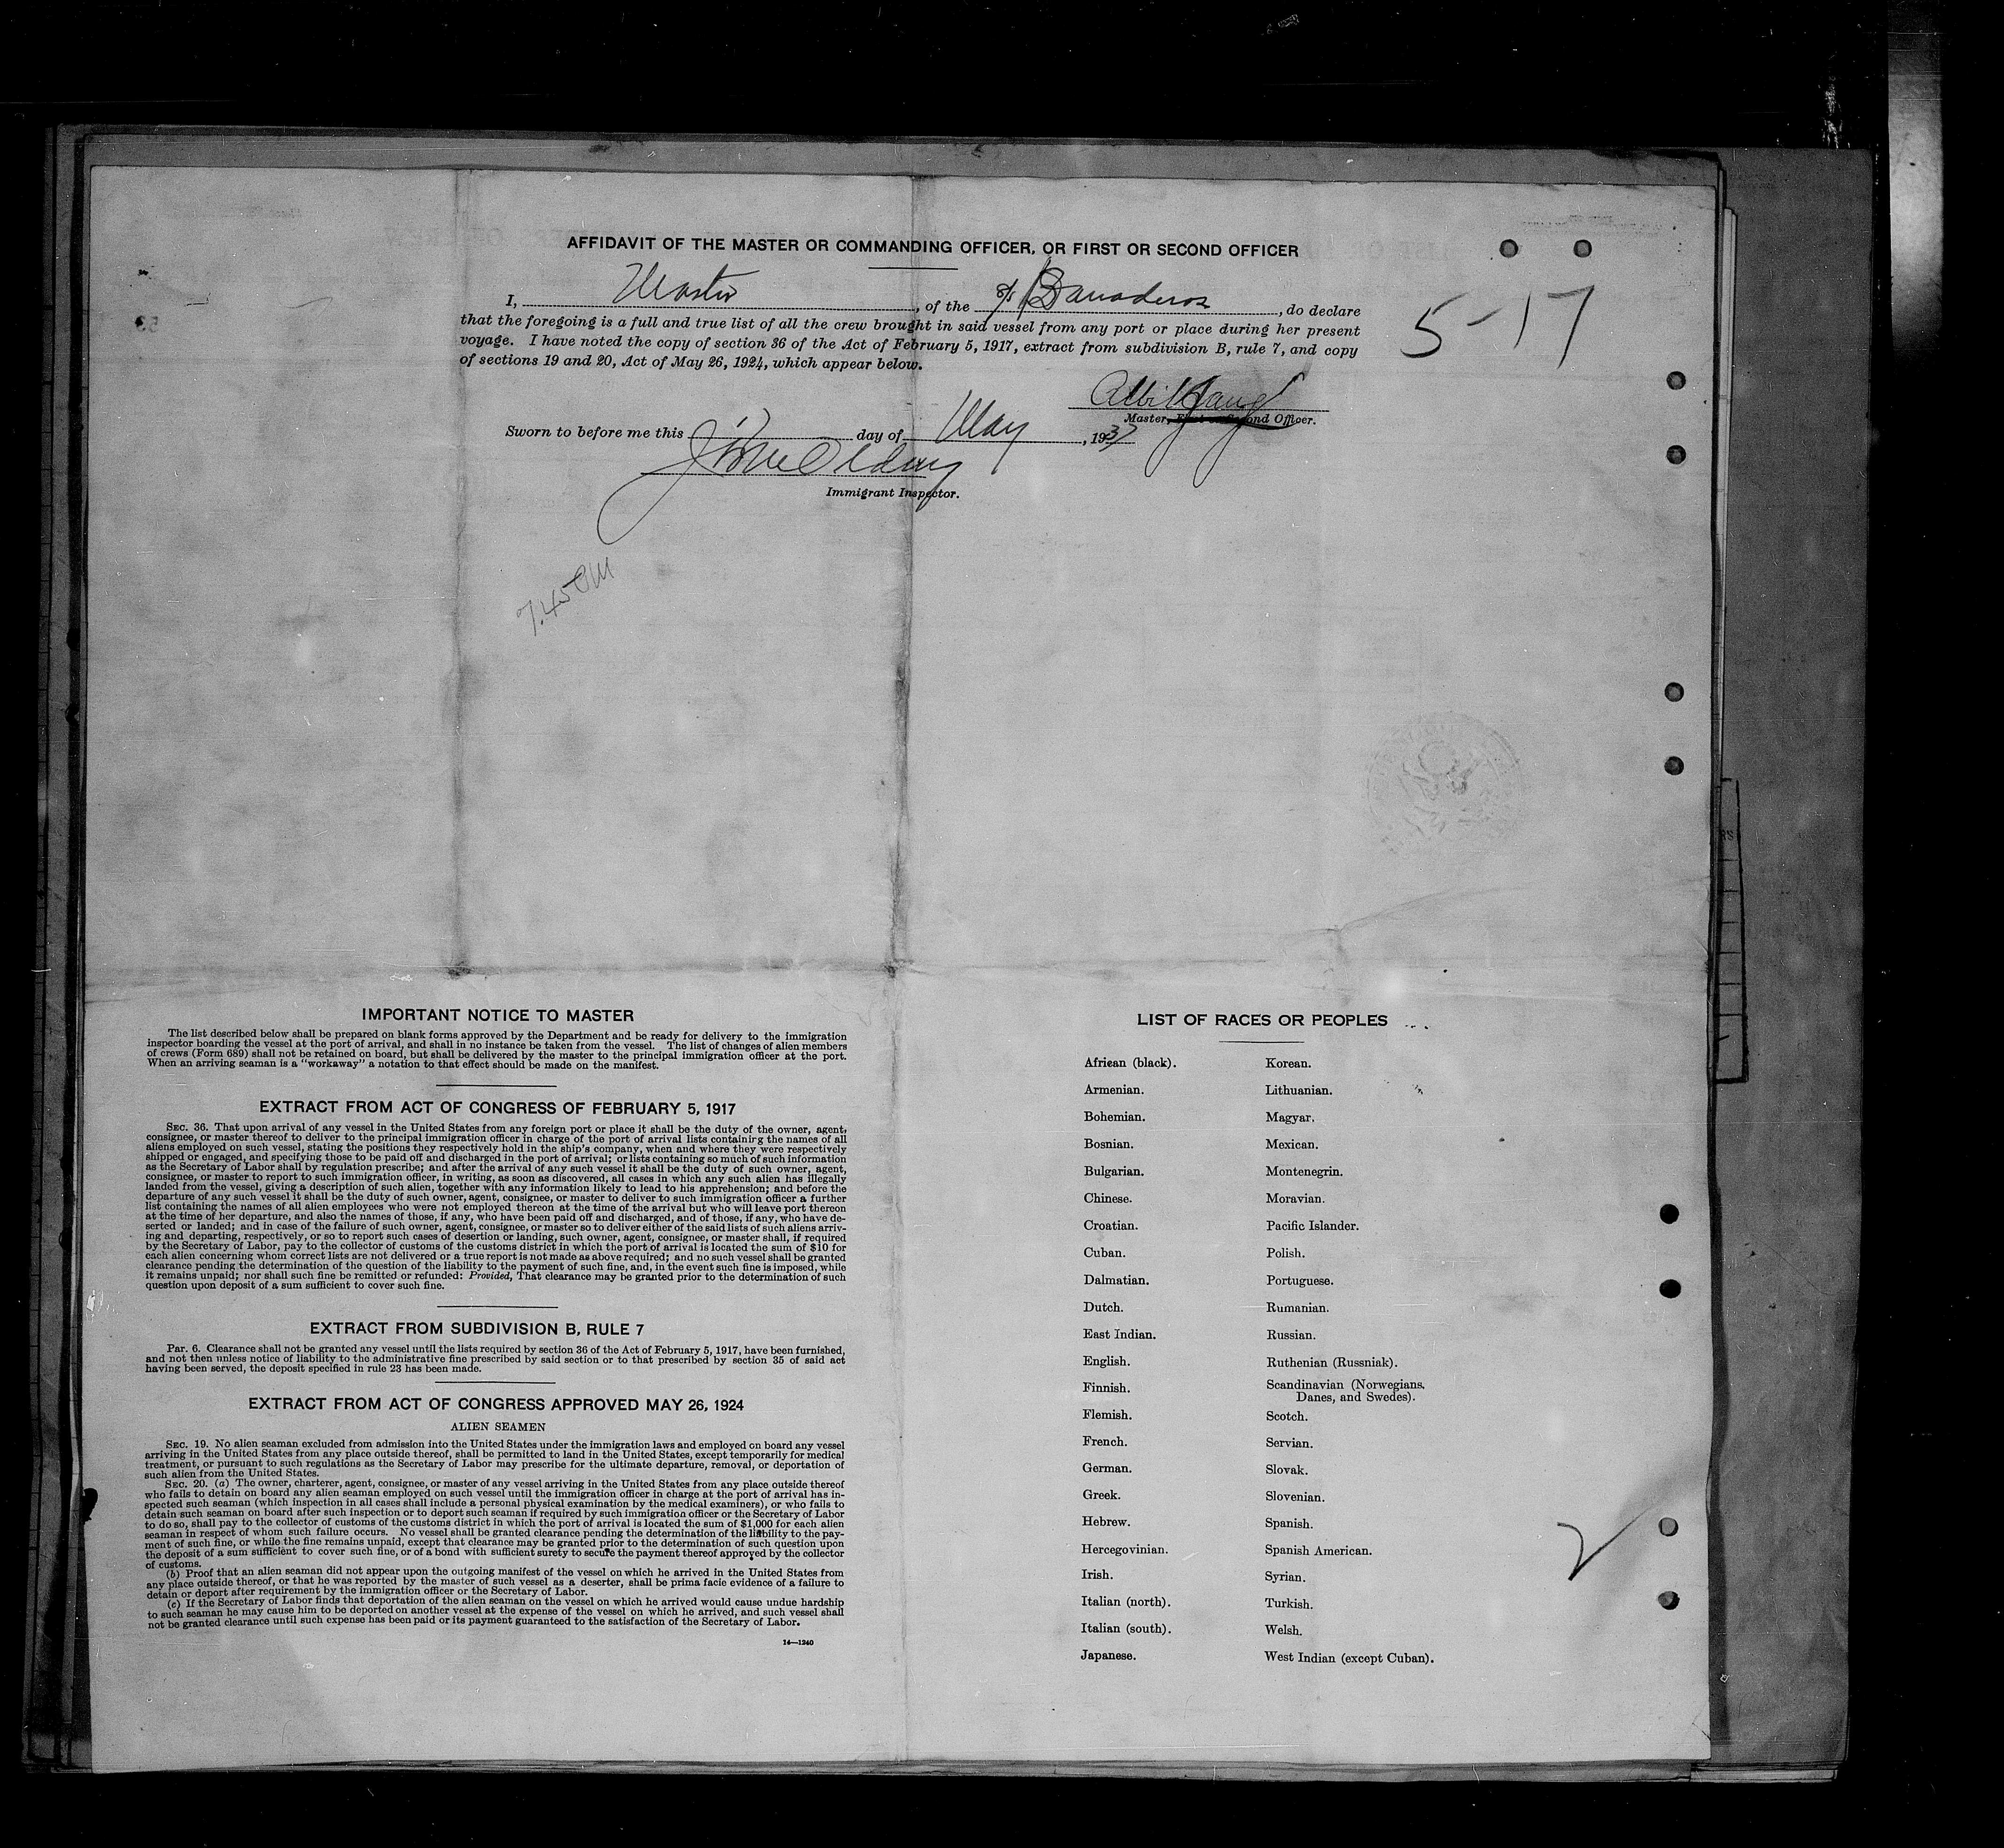 AFFIDAVIT OF THE MASTER OR COMMANDING OFFICER, OR FIRST OR SECOND OFFICER
I, Master, of the S/S Banaderos, do declare
5-17
that the foregoing is a full and true list of all the crew brought in said vessel from any port or place during her present
voyage. I have noted the copy of section 36 of the Act of February 5, 1917, extract from subdivision B, rule 7, and copy
of sections 19 and 20, Act of May 26, 1924, which appear below.
Master, First or Second Officer.
Sworn to before me this day of May, 1937
Immigrant Inspector.
7.45 PM
IMPORTANT NOTICE TO MASTER
The list described below shall be prepared on blank forms approved by the Department and be ready for delivery to the immigration
inspector boarding the vessel at the port of arrival, and shall in no instance be taken from the vessel. The list of changes of alien members
of crews (Form 689) shall not be retained on board, but shall be delivered by the master to the principal immigration officer at the port.
When an arriving seaman is a "workaway" a notation to that effect should be made on the manifest.
EXTRACT FROM ACT OF CONGRESS OF FEBRUARY 5, 1917
SEC. 36. That upon arrival of any vessel in the United States from any foreign port or place it shall be the duty of the owner, agent,
consignee, or master thereof to deliver to the principal immigration officer in charge of the port of arrival lists containing the names of all
aliens employed on such vessel, stating the positions they respectively hold in the ship's company, when and where they were respectively
shipped or engaged, and specifying those to be paid off and discharged in the port of arrival; or lists containing so much of such information
as the Secretary of Labor shall by regulation prescribe; and after the arrival of any such vessel it shall be the duty of such owner, agent,
consignee, or master to report to such immigration officer, in writing, as soon as discovered, all cases in which any such alien has illegally
landed from the vessel, giving a description of such alien, together with any information likely to lead to his apprehension; and before the
departure of any such vessel it shall be the duty of such owner, agent, consignee, or master to deliver to such immigration officer a further
list containing the names of all alien employees who were not employed thereon at the time of the arrival but who will leave port thereon
at the time of her departure, and also the names of those, if any, who have been paid off and discharged, and of those, if any, who have de-
serted or landed; and in case of the failure of such owner, agent, consignee, or master so to deliver either of the said lists of such aliens arriv-
ing and departing, respectively, or so to report such cases of desertion or landing, such owner, agent, consignee, or master shall, if required
by the Secretary of Labor, pay to the collector of customs of the customs district in which the port of arrival is located the sum of $10 for
each alien concerning whom correct lists are not delivered or a true report is not made as above required; and no such vessel shall be granted
clearance pending the determination of the question of the liability to the payment of such fine, and, in the event such fine is imposed, while
it remains unpaid; nor shall such fine be remitted or refunded: Provided, That clearance may be granted prior to the determination of such
question upon deposit of a sum sufficient to cover such fine.
EXTRACT FROM SUBDIVISION B, RULE 7
Par. 6. Clearance shall not be granted any vessel until the lists required by section 36 of the Act of February 5, 1917, have been furnished,
and not then unless notice of liability to the administrative fine prescribed by said section or to that prescribed by section 35 of said act
having been served, the deposit specified in rule 23 has been made.
EXTRACT FROM ACT OF CONGRESS APPROVED MAY 26, 1924
ALIEN SEAMEN
SEC. 19. No alien seaman excluded from admission into the United States under the immigration laws and employed on board any vessel
arriving in the United States from any place outside thereof, shall be permitted to land in the United States, except temporarily for medical
treatment, or pursuant to such regulations as the Secretary of Labor may prescribe for the ultimate departure, removal, or deportation of
such alien from the United States.
SEC. 20. (a) The owner, charterer, agent, consignee, or master of any vessel arriving in the United States from any place outside thereof
who fails to detain on board any alien seaman employed on such vessel until the immigration officer in charge at the port of arrival has in-
spected such seaman (which inspection in all cases shall include a personal physical examination by the medical examiners), or who fails to
detain such seaman on board after such inspection or to deport such seaman if required by such immigration officer or the Secretary of Labor
to do so, shall pay to the collector of customs of the customs district in which the port of arrival is located the sum of $1,000 for each alien
seaman in respect of whom such failure occurs. No vessel shall be granted clearance pending the determination of the liability to the pay-
ment of such fine, or while the fine remains unpaid, except that clearance may be granted prior to the determination of such question upon
the deposit of a sum sufficient to cover such fine, or of a bond with sufficient surety to secure the payment thereof approved by the collector
of customs.
(b) Proof that an alien seaman did not appear upon the outgoing manifest of the vessel on which he arrived in the United States from
any place outside thereof, or that he was reported by the master of such vessel as a deserter, shall be prima facie evidence of a failure to
detain or deport after requirement by the immigration officer or the Secretary of Labor.
(c) If the Secretary of Labor finds that deportation of the alien seaman on the vessel on which he arrived would cause undue hardship
to such seaman he may cause him to be deported on another vessel at the expense of the vessel on which he arrived, and such vessel shall
not be granted clearance until such expense has been paid or its payment guaranteed to the satisfaction of the Secretary of Labor.
14—1240
LIST OF RACES OR PEOPLES
African (black).
Armenian.
Bohemian.
Bosnian.
Bulgarian.
Chinese.
Croatian.
Cuban.
Dalmatian.
Dutch.
East Indian.
English.
Finnish.
Flemish.
French.
German.
Greek.
Hebrew.
Hercegovinian.
Irish.
Italian (north).
Italian (south).
Japanese.
Korean.
Lithuanian.
Magyar.
Mexican.
Montenegrin.
Moravian.
Pacific Islander.
Polish.
Portuguese.
Rumanian.
Russian.
Ruthenian (Russniak).
Scandinavian (Norwegians,
Danes, and Swedes).
Scotch.
Servian.
Slovak.
Slovenian.
Spanish.
Spanish American.
Syrian.
Turkish.
Welsh.
West Indian (except Cuban).